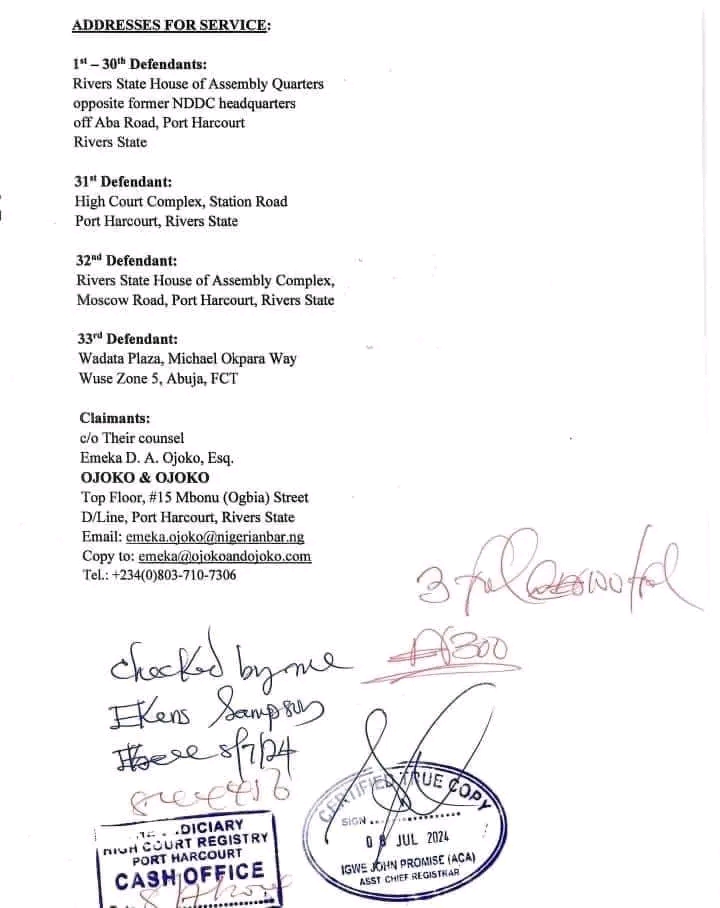 ADDRESSES FOR SERVICE:
1st – 30th Defendants:
Rivers State House of Assembly Quarters
opposite former NDDC headquarters
off Aba Road, Port Harcourt
Rivers State
31st Defendant:
High Court Complex, Station Road
Port Harcourt, Rivers State
32nd Defendant:
Rivers State House of Assembly Complex,
Moscow Road, Port Harcourt, Rivers State
33rd Defendant:
Wadata Plaza, Michael Okpara Way
Wuse Zone 5, Abuja, FCT
Claimants:
c/o Their counsel
Emeka D. A. Ojoko, Esq.
OJOKO & OJOKO
Top Floor, #15 Mbonu (Ogbia) Street
D/Line, Port Harcourt, Rivers State
Email: emeka.ojoko@nigerianbar.ng
Copy to: emeka@ojokoandojoko.com
Tel.: +234(0)803-710-7306
3
₦300
checked by me
Ekens Sampson
8/7/24
CERTIFIED TRUE COPY
SIGN
JUL 2024
IGWE JOHN PROMISE (ACA)
ASST CHIEF REGISTRAR
HIGH COURT REGISTRY
PORT HARCOURT
CASH OFFICE